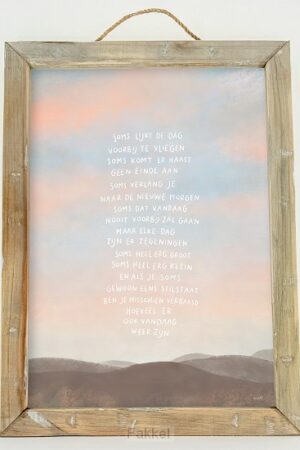 SOMS LIJKT DE DAG
VOORBIJ TE VLIEGEN
SOMS KOMT ER HAAST
GEEN EINDE AAN
SOMS VERLANG JE
NAAR DE NIEUWE MORGEN
SOMS DAT VANDAAG
NOOIT VOORBIJ ZAL GAAN
MAAR ELKE DAG
ZIJN ER ZEGENINGEN
SOMS HEEL ERG GROOT
SOMS HEEL ERG KLEIN
EN ALS JE SOMS
GEWOON EENS STILSTAAT
BEN JE MISSCHIEN VERBAASD
HOEVEEL ER
OOK VANDAAG
WEER ZIJN
Fakkel